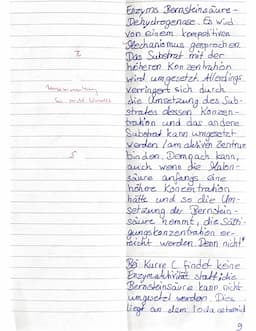 Enzyms Bernsteinsäure-
Dehydrogenase. Es wird
von einem kompetitiven
Mechanismus gesprochen.
Das Substrat mit der
höheren Konzentration
wird umgesetzt. Allerdings
verringert sich durch
die Umsetzung des Sub-
strates dessen Konzen-
tration und das andere
Substrat kann umgesetzt
werden / am aktiven Zentrum
binden. Demnach kann,
auch wenn die Malon-
säure anfangs eine
höhere Konzentration
hätte und so die Um-
setzung der Bernstein-
säure hemmt, die Sätti-
gungskonzentration er-
reicht werden. Denn nicht
Bei Kurve C findet keine
Enzymaktivität statt, die
Bernsteinsäure kann nicht
umgesetzt werden. Dies
liegt an dem
9